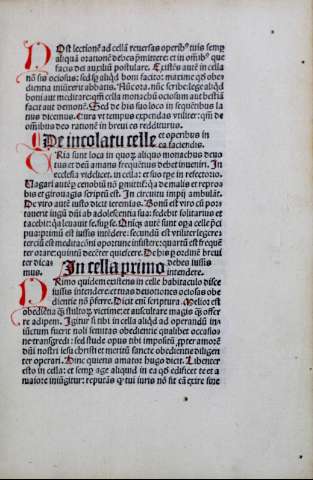 POst lectionē ad cellā reuersus operibꝰ tuis semꝑ
aliquā orationē debes p̄mittere: et in oībꝰ que
facis dei auxiliū postulare. Existēs autē in cella
nō sis ociosus: sed sꝑ aliqd boni facito: maxime qd obe-
dientia iniūxerit abbatis. Nūc ora. nūc scribe: lege aliqd
boni aut meditare: qm̄ cella monachū ociosum aut bestiā
facit aut demonē. Sed de his suo loco in sequētibus la
tius dicemus. Cura vt tempus expendas vtiliter: qm̄ de
omnibus deo rationē in breui es redditurus.
De incolatu celle et operibus in
ea faciendis.
TRia sunt loca in quoꝝ aliquo monachus deuo
tus et deū amans frequētius debet inueniri. In
ecclesia videlicet. in cella: et suo tꝑe in refectorio.
Uagari autē ꝑ cenobiū nō ꝑmittit: qa de malis et reproba
bis et girouagis scriptū est. In circuitu impij ambulāt.
De viro autē iusto dicit ieremias. Bonū est viro cū por-
tauerit iugū dn̄i ab adolescentia sua: sedebit solitarius et
tacebit: qa leuauit se supra se. Quinqꝫ autē sunt opa celle ppri
pua: primū est iussis intēdere: secundū est vtiliter legere:
terciū est meditatōni oportune insistere: quartū est frequē
ter orare: quintū decēter quiescere. De his ꝑ ordinē breui
ter dica- In cella primo debes iussis
mus. intendere.
PRimo quidem existens in celle habitaculo disce
iussis intendere: et tuas deuotiones ociosas obe
dientie nō p̄ferre. Dicit eni scriptura. Melior est
obediētia qꝫ stultoꝝ victime: et auscultare magis qꝫ offer
re adipem. Igitur si tibi in cella aliqd ad operandū in-
iūctum fuerit: noli semitas obedientie qualibet occasio
ne transgredi: sed stude opus tibi impositū ꝓpter amorē
dn̄i nostri iesu christi et meritū sancte obedientie diligen
ter operari. Hinc quiens amator hugo dicit. Libenter
esto in cella: et semꝑ age aliquid in ea qd edificet te: et a
maiore iniūgitur: reputās ꝙ tui iuris nō sit eā exire sine